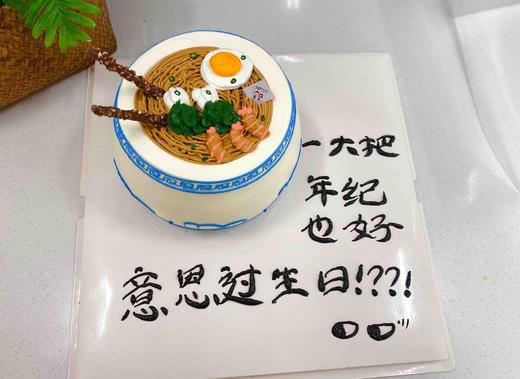 一大把
年纪
也好
意思过生日!???!